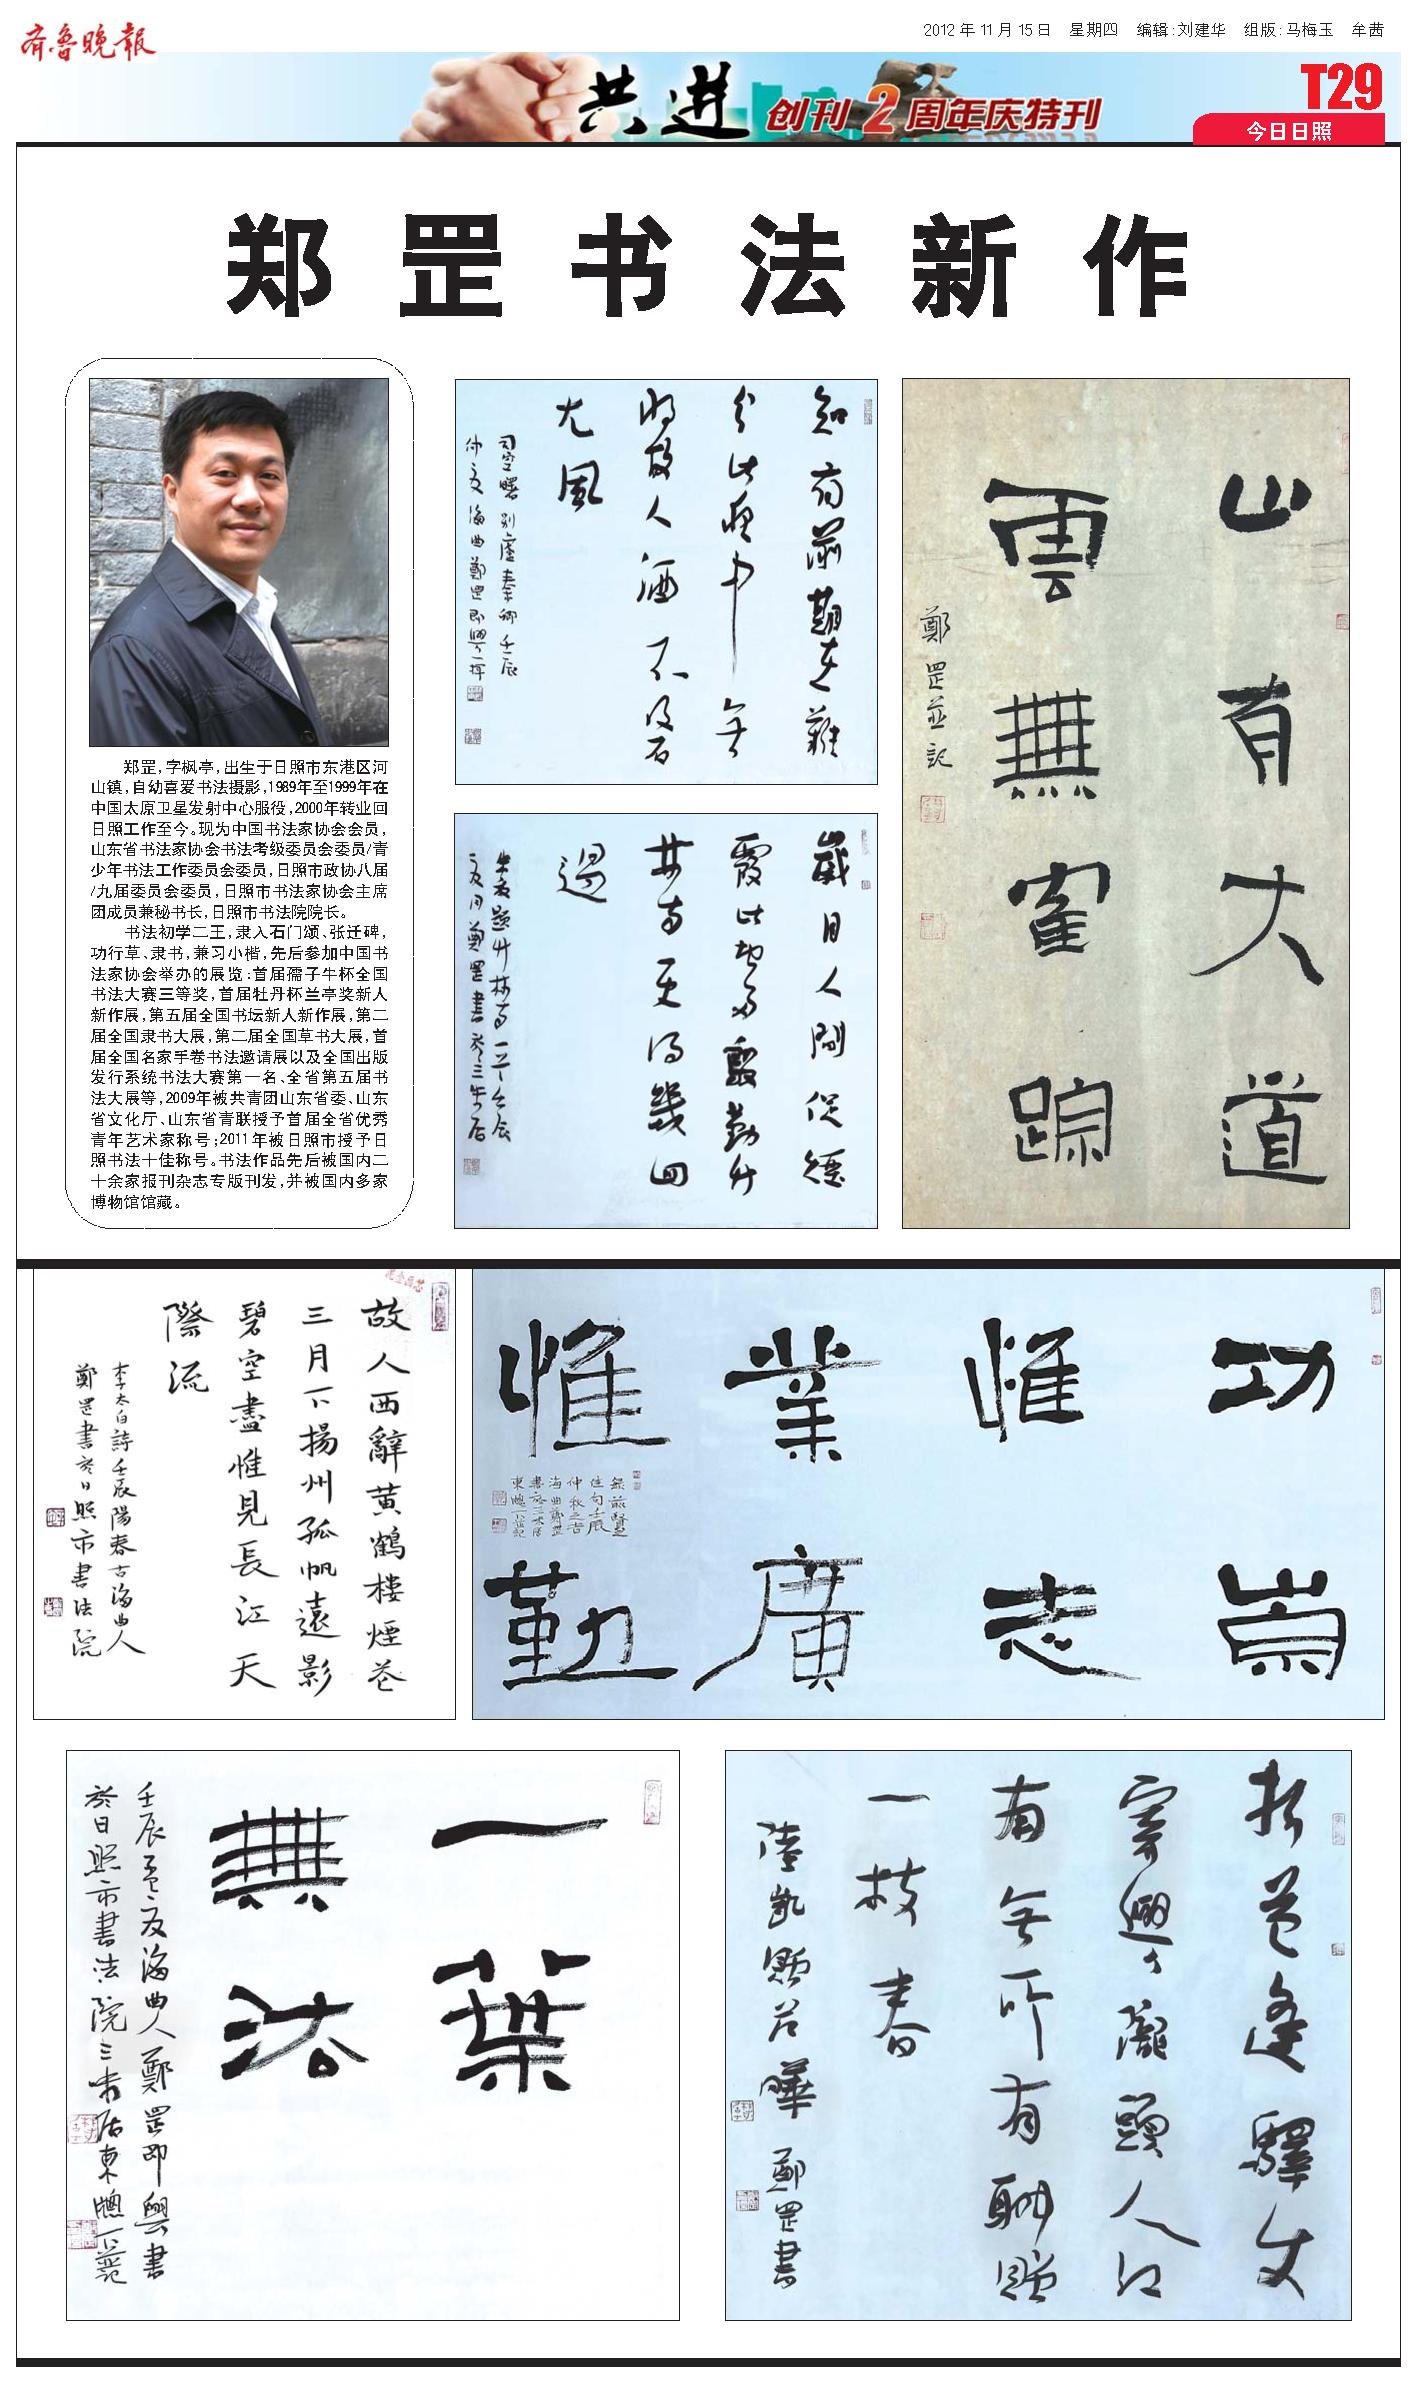 齐鲁晚报
2012年11月15日 星期四 编辑:刘建华 组版:马梅玉 牟茜
共进 创刊2周年庆特刊
T29
今日日照
郑罡书法新作
郑罡,字枫亭,出生于日照市东港区河
山镇,自幼喜爱书法摄影,1989年至1999年在
中国太原卫星发射中心服役,2000年转业回
日照工作至今。现为中国书法家协会会员,
山东省书法家协会书法考级委员会委员/青
少年书法工作委员会委员,日照市政协八届
/九届委员会委员,日照市书法家协会主席
团成员兼秘书长,日照市书法院院长。
书法初学二王,隶入石门颂、张迁碑,
功行草、隶书,兼习小楷,先后参加中国书
法家协会举办的展览:首届孺子牛杯全国
书法大赛三等奖,首届牡丹杯兰亭奖新人
新作展,第五届全国书坛新人新作展,第二
届全国隶书大展,第二届全国草书大展,首
届全国名家手卷书法邀请展以及全国出版
发行系统书法大赛第一名、全省第五届书
法大展等,2009年被共青团山东省委、山东
省文化厅、山东省青联授予首届全省优秀
青年艺术家称号;2011年被日照市授予日
照书法十佳称号。书法作品先后被国内二
十余家报刊杂志专版刊发,并被国内多家
博物馆馆藏。
知有前期在難
分此夜中無
將故人酒不及石
尤風
司空曙別盧秦卿壬辰
仲夏海曲鄭罡即興一揮
歲月人間促煙
霞此地多殷勤竹
林寺更得幾回
過
朱放題竹林寺一首壬辰
夏月鄭罡書於三朱居
山有大道
雲無寉踪
鄭罡並記
故人西辭黃鶴樓煙花
三月下揚州孤帆遠影
碧空盡惟見長江天
際流
李太白詩壬辰陽春古海曲人
鄭罡書於日照市書法院
功崇
惟志
業廣
惟勤
錄前賢
佳句壬辰
仲秋之吉
海曲鄭罡
一葉
無法
壬辰孟夏海曲人鄭罡即興書
於日照市書法院三朱居東牕下並記
折花逢驛使
寄興隴頭人江
南無所有聊贈
一枝春
陸凱贈范曄 鄭罡書